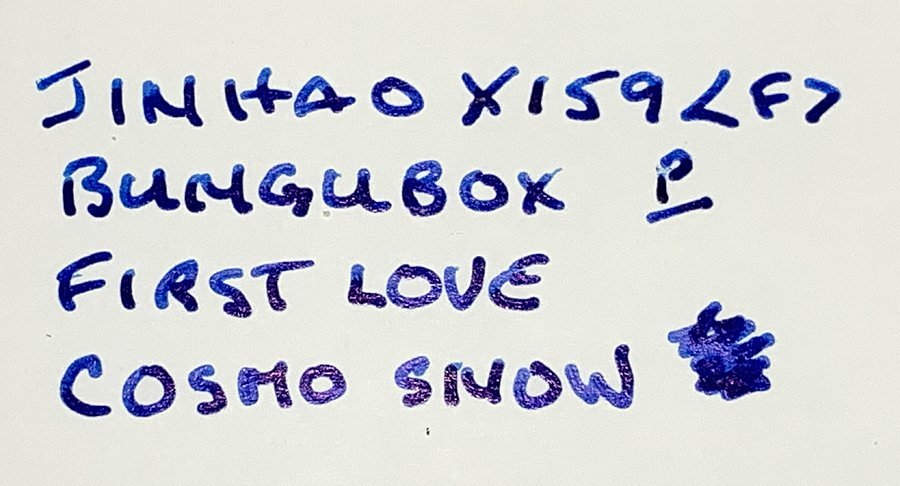 JINHAO X159 <F>
BUNGUBOX P
FIRST LOVE
COSMO SNOW